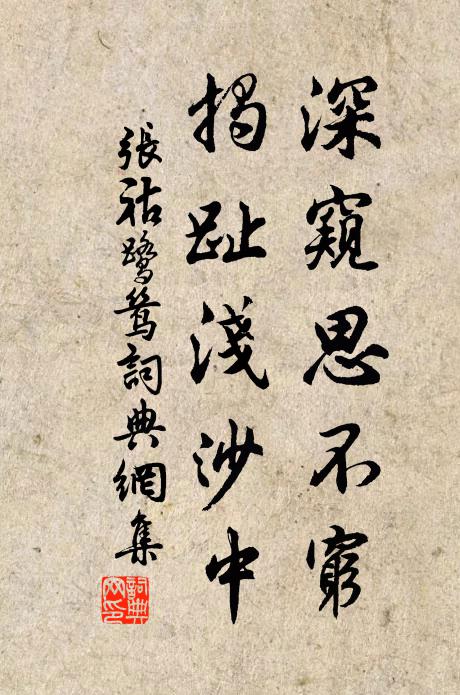 深窺思不窮
揭趾淺沙中
張祜鷺鷥詞典網集
詞典網印